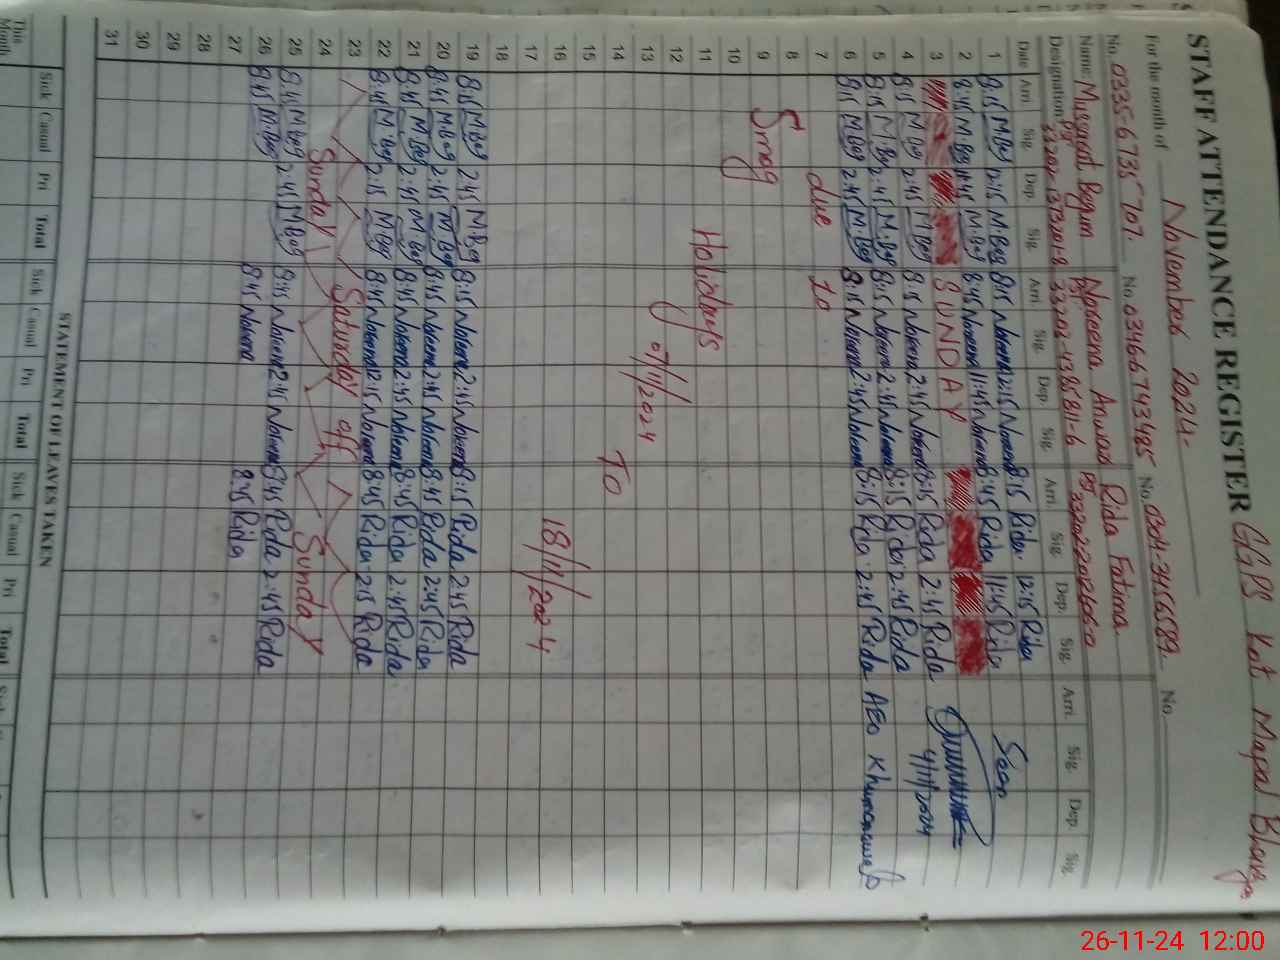 STAFF ATTENDANCE REGISTER GGPS Kot Mapal
For the month of November 2024
No. 0335-6735707. No. 03466743485 No. 0304-3456589 No.
Name: Musarat Begum Noreena Anwar Rida Fatima
Designation: PST PST PST
33202-4385811-6
Date Arri. Sig. Dep. Sig. Arri. Sig. Dep. Sig. Arri. Sig. Dep. Sig. Arri. Sig. Dep. Sig.
1 8:15 M.Beg 12:15 M.Beg 8:15 Noreena 12:15 Noreena 8:15 Rida 12:15 Rida Seen
2 8:45 M.Beg 11:45 M.Beg 8:45 Noreena 11:45 Noreena 8:45 Rida 11:45 Rida
3 SUNDAY 4/11/2024
4 8:15 M.Beg 2:45 M.Beg 8:15 Noreena 2:45 Noreena 8:15 Rida 2:45 Rida
5 8:15 M.Beg 2:45 M.Beg 8:15 Noreena 2:45 Noreena 8:15 Rida 2:45 Rida
6 8:15 M.Beg 2:45 M.Beg 8:15 Noreena 2:45 Noreena 8:15 Rida 2:45 Rida AEO
7 due to
8
9 Smog
10
11 Holidays
12
13 07/11/2024
14 To
15
16
17 18/11/2024
18
19 8:15 M.Beg 2:45 M.Beg 8:15 Noreena 2:45 Noreena 8:15 Rida 2:45 Rida
20 8:45 M.Beg 2:45 M.Beg 8:45 Noreena 2:45 Noreena 8:45 Rida 2:45 Rida
21 8:45 M.Beg 2:45 M.Beg 8:45 Noreena 2:45 Noreena 8:45 Rida 2:45 Rida
22 8:45 M.Beg 2:15 M.Beg 8:45 Noreena 12:15 Noreena 8:45 Rida 2:15 Rida
23 Saturday off
24 Sunday Sunday
25 8:45 M.Beg 2:45 M.Beg 8:45 Noreena 2:45 Noreena 8:45 Rida 2:45 Rida
26 8:45 M.Beg 8:45 Noreena 8:45 Rida
27
28
29
30
31
STATEMENT OF LEAVES TAKEN
This Month Sick Casual Pri Total Sick Casual Pri Total Sick Casual Pri Total
26-11-24 12:00